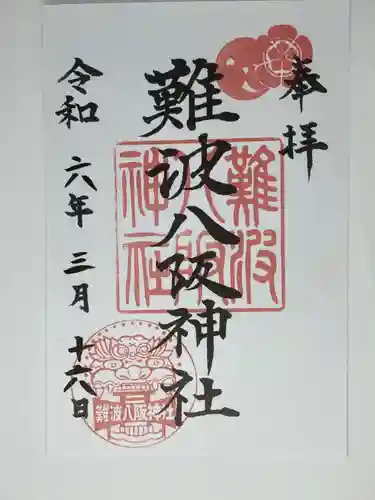 奉拝
難波八阪神社
難波八阪神社
令和六年三月十六日
難波八阪神社